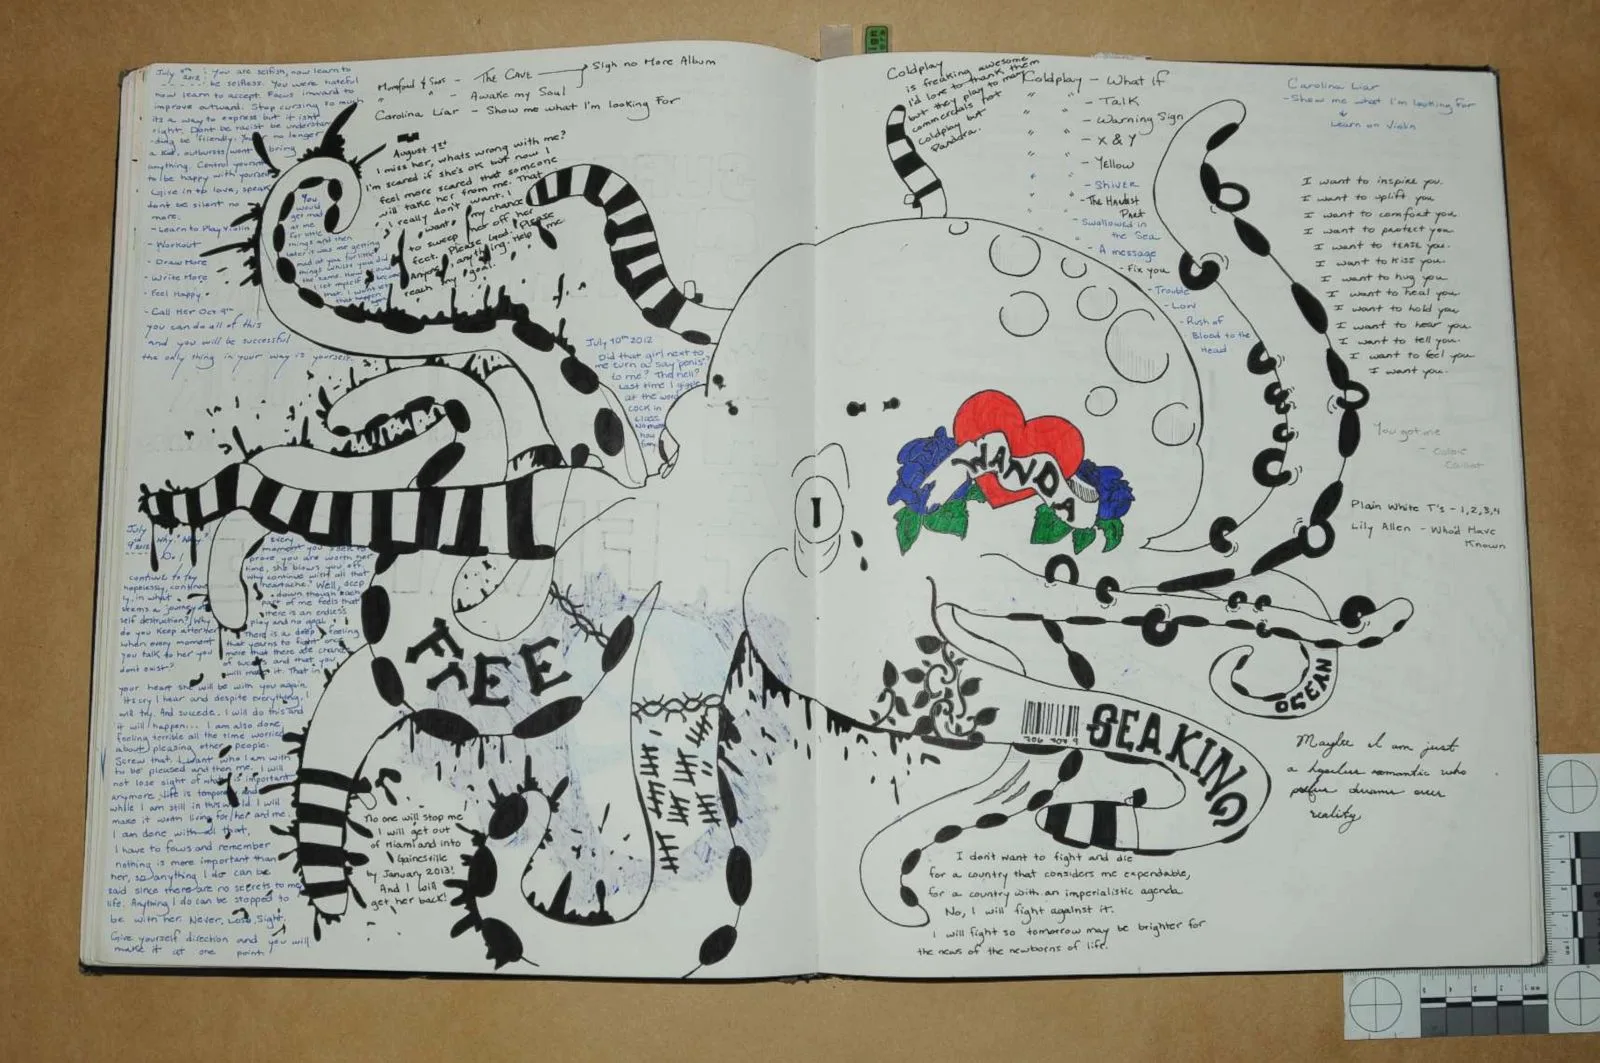 July 8th 2012: You are selfish, now learn to
be selfless. You were hateful
now learn to accept. Focus inward to
improve outward. Stop cursing so much
its a way to express but it isnt
right. Dont be racist be understan
-ding be friendly. You r no longer
a kid, outbursts wont bring
anything. Control yourself
to be happy with yourself
Give in to love, speak
dont be silent no
more.
- Learn to Play Violin
- Workout
- Draw More
- Write More
- Feel Happy
- Call Her Oct 9th
you can do all of this
and you will be successful
the only thing in your way is yourself.
You
would
get mad
at me
for little
things and then
later it was me getting
mad at you for little
things whilst you did
the same. How could
I let myself become
that. I wont let
that happen
again
Mumford & Sons - The Cave → Sigh no More Album
" " - Awake my Soul
Carolina Liar - Show me what I'm looking For
August 1st
I miss her, whats wrong with me?
I'm scared if she's ok but now I
feel more scared that someone
will take her from me. That
I really don't want. I
want my chance
to sweep her off her
feet. Please God. Please
Anyone, anything. Help me
reach my goal.
July 10th 2012
Did that girl next to
me turn & say "penis"
to me? The hell?
Last time I giggle
at the word
cock in
class
No matter
how
funny
July
9th 2012
Why? Why?
continue to try
hopelessly, continuo
ly, in what
seems a journey of
self destruction? Why
do you keep after her
when every moment
you talk to her you
dont exist?
Every
moment you seek to
prove you are worth her
time, she blows you off.
Why continue with all that
heartache? Well, deep
down though each
part of me feels that
there is an endless
play and no goal.
There is a deep feeling
that yearns to fight once
more that there are chances
of success and that you
will make it. That in
your heart she will be with you again.
Its cry I hear and despite everything, I
will try. And succede. I will do this and
it will happen... I am also done,
feeling terrible all the time worried
about pleasing other people.
Screw that. I want who I am with
to be pleased and then me. I will
not lose sight of what is important
anymore, life is temporary and
while I am still in this world I will
make it worth living for her and me.
I am done with all that,
I have to focus and remember
nothing is more important than
her, so anything I do can be
said since there are no secrets to me
life. Anything I do can be stopped to
be with her. Never. Lose. Sight.
Give yourself direction and you will
make it at one point
FREE
No one will stop me
I will get out
of Miami and into
Gainesville
by January 2013!
And I will
get her back!
Coldplay
is freaking awesome
I'd love to thank them
but they play to many
commercials not
coldplay but
Pandora.
Coldplay - What If
" " - Talk
" " - Warning Sign
" " - X & Y
" " - Yellow
- Shiver
- The Hardest
Part
- Swallowed in
the Sea
- A message
- Fix you
- Trouble
- Low
- Rush of
Blood to the
Head
Carolina Liar
- Show me what I'm looking For
Learn on Violin
I want to inspire you.
I want to uplift you
I want to comfort you
I want to protect you
I want to tease you.
I want to kiss you
I want to hug you
I want to heal you
I want to hold you
I want to hear you
I want to tell you.
I want to feel you
I want you.
WANDA
I
You got me
- Colbie
Caillat
Plain White T's - 1, 2, 3, 4
Lily Allen - Who'd Have
Known
OCEAN
SEA KING
Maybe I am just
a hopeless romantic who
prefer dreams over
reality
I dont want to fight and die
for a country that considers me expendable,
for a country with an imperialistic agenda.
No, I will fight against it.
I will fight so tomorrow may be brighter for
the news of the newborns of life.